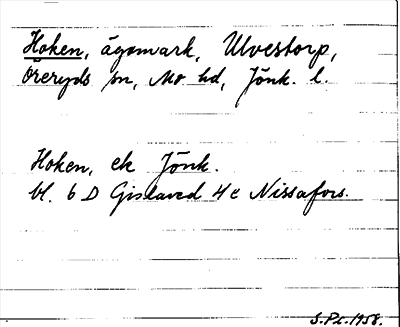 Hoken, ägomark, Ulvestorp,
Öreryds sn, Mo hd, Jönk. l.
Hoken, ek Jönk.
bl. 6 D Gislaved 4 e Nissafors.
S.Pl. 1958.